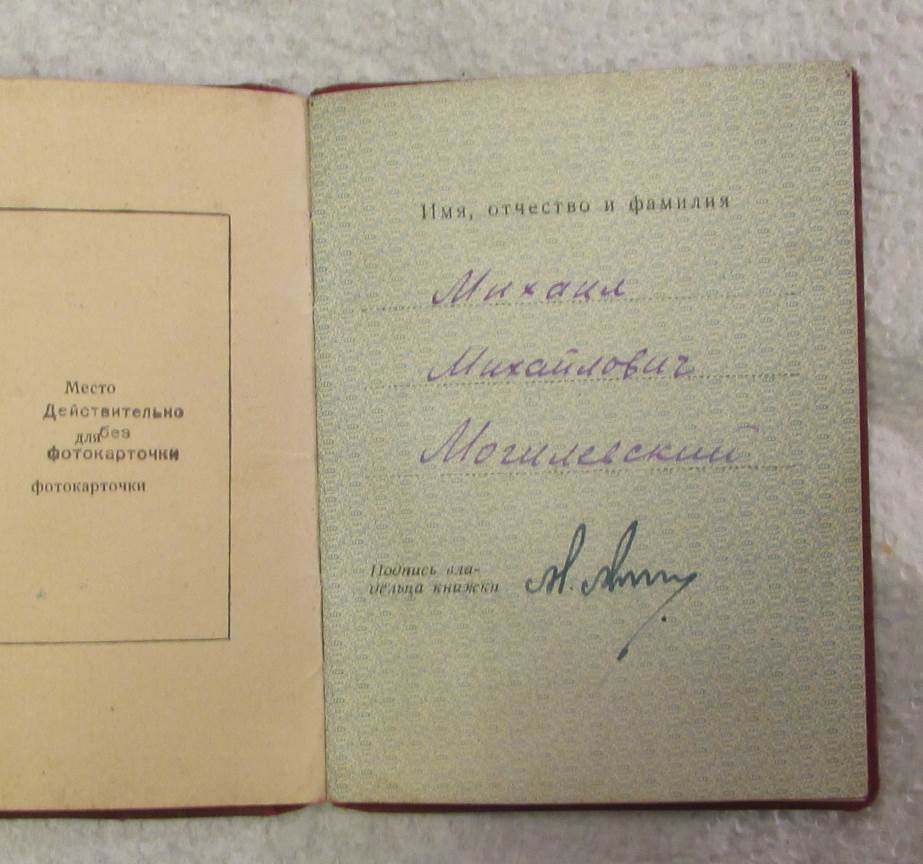 Место
Действительно
для без
фотокарточки
фотокарточки
Имя, отчество и фамилия
Михаил
Михайлович
Могилевский
Подпись вла-
дельца книжки